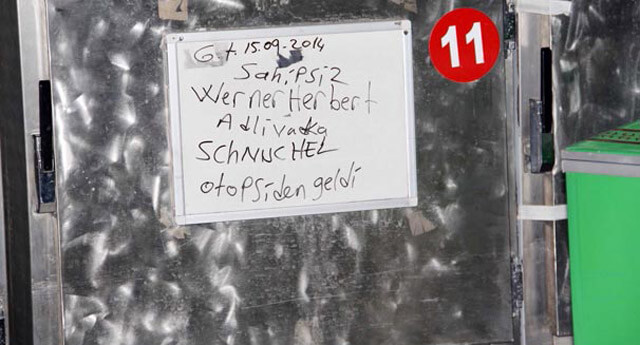 G.t. 15.09.2014
11
Sahipsiz
Werner Herbert
Adlivaka
SCHNUCHEL
otopsiden geldi